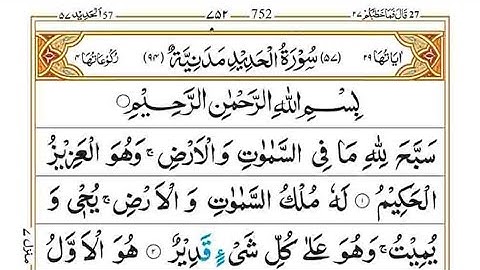 ٥٧ اَلْحَدِيْد 57 ٧٥٢ 752 ٢٧ قَالَ فَمَا خَطْبُكُمْ 27
رُكُوْعَاتُهَا ٤ (٥٧) سُوْرَةُ الْحَدِيْدِ مَدَنِيَّةٌ (٩٤) اٰيَاتُهَا ٢٩
بِسْمِ اللّٰهِ الرَّحْمٰنِ الرَّحِيْمِ
سَبَّحَ لِلّٰهِ مَا فِى السَّمٰوٰتِ وَالْاَرْضِ ۚ وَهُوَ الْعَزِيْزُ
الْحَكِيْمُ ١ لَهٗ مُلْكُ السَّمٰوٰتِ وَ الْاَرْضِ ۚ يُحْىٖ وَ
يُمِيْتُ ۚ وَهُوَ عَلٰى كُلِّ شَىْءٍ قَدِيْرٌ ٢ هُوَ الْاَوَّلُ
منزل ٧